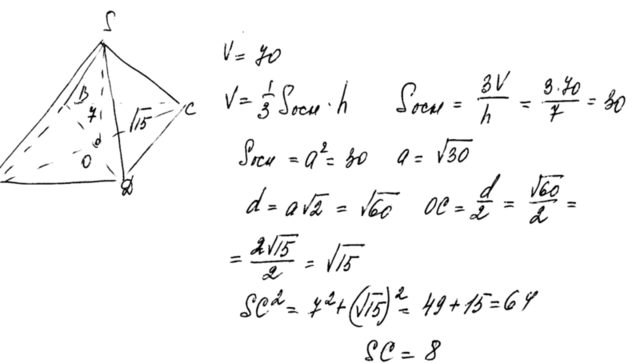 S
B
7
√15
C
O
D
V = 70
V = 1/3 Sосн · h   Sосн = 3V/h = 3·70/7 = 30
Sосн = a² = 30   a = √30
d = a√2 = √60   OC = d/2 = √60/2 =
= 2√15/2 = √15
SC² = 7² + (√15)² = 49 + 15 = 64
SC = 8